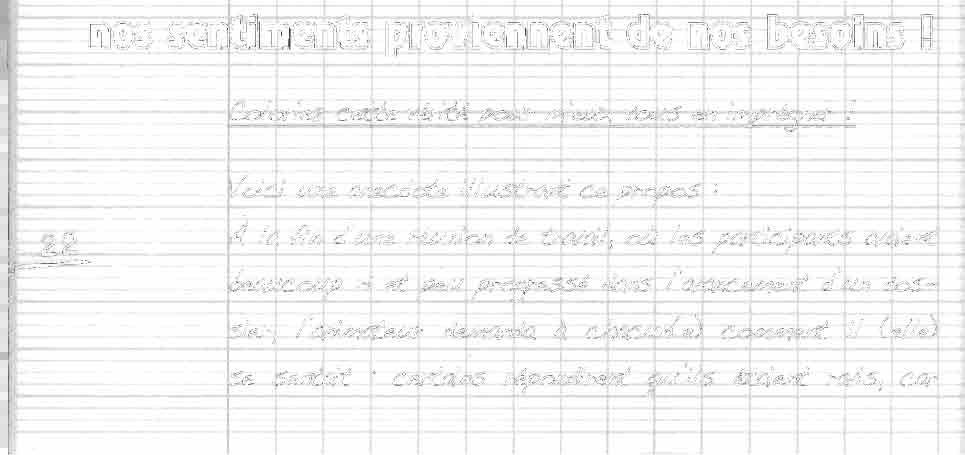 nos sentiments proviennent de nos besoins !
Coloriez cette vérité pour mieux vous en imprégner !
Voici une anecdote illustrant ce propos :
22
À la fin d'une réunion de travail, où les participants avaient
beaucoup ri et peu progressé dans l'avancement d'un dos-
sier, l'animateur demanda à chacun(e) comment il (elle)
se sentait : certains répondirent qu'ils étaient ravis, car